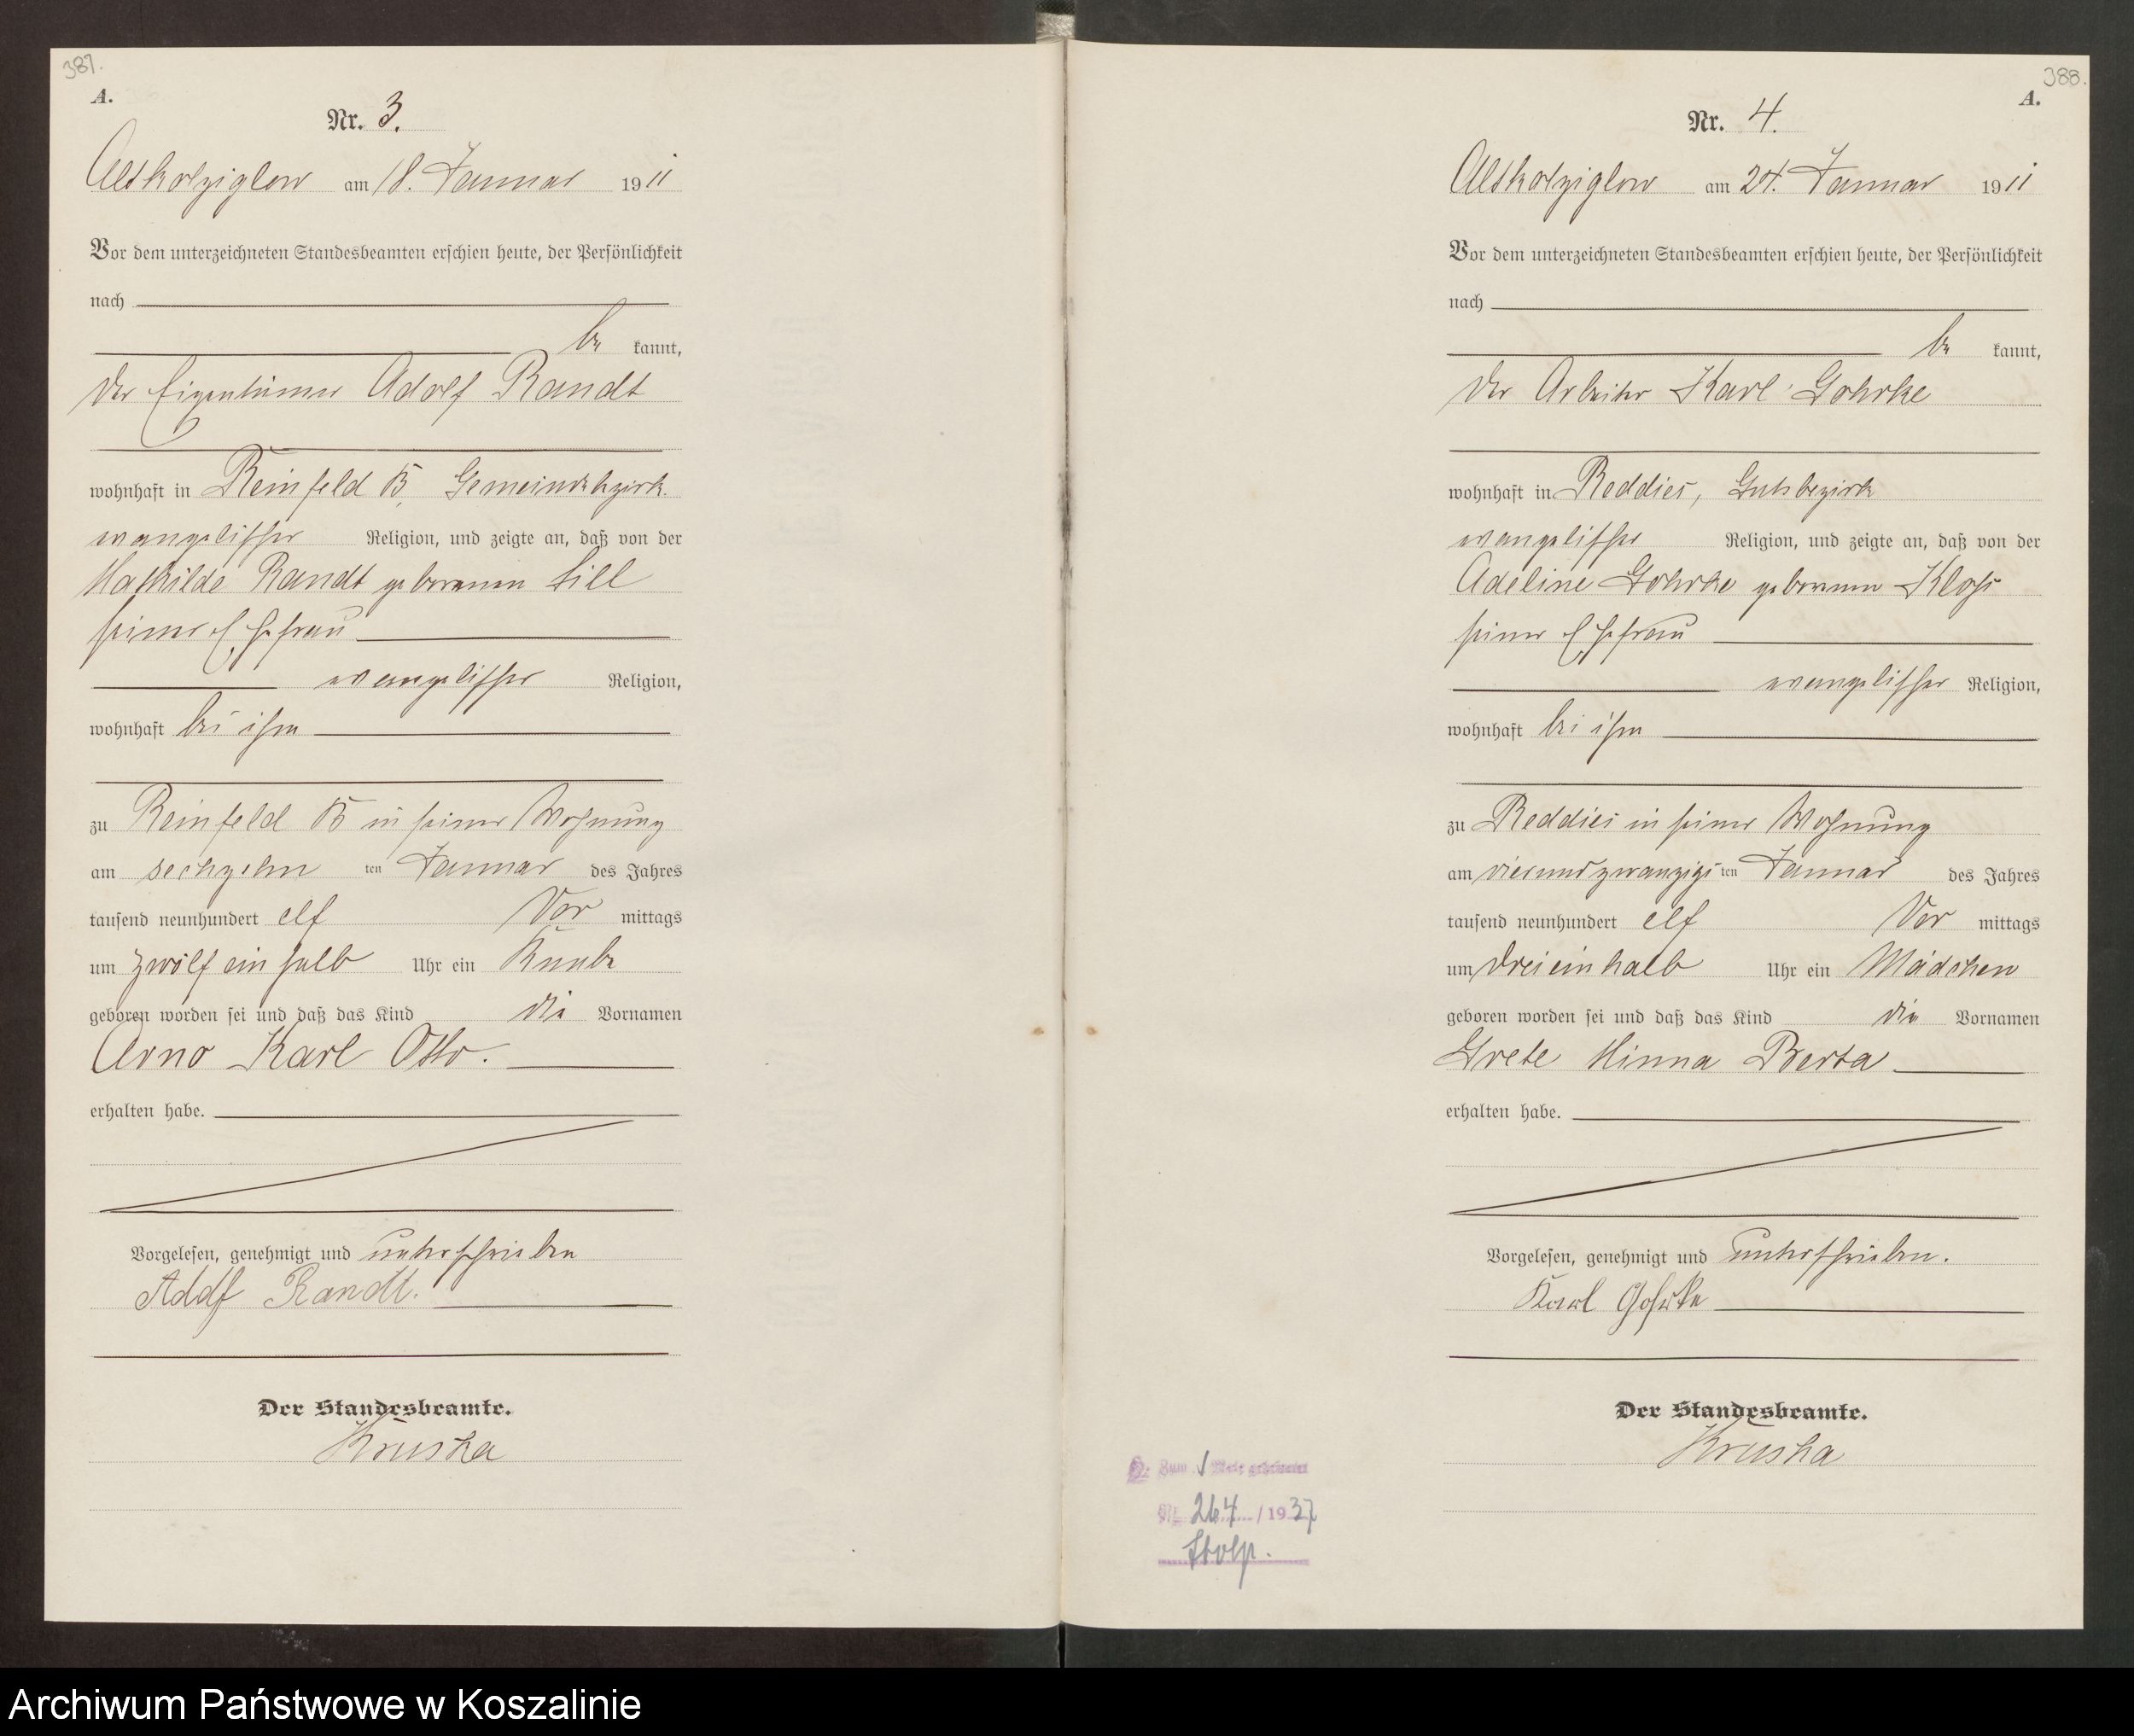 387.
A.
Nr. 3.
Altkolziglow am 18. Januar 1911
Vor dem unterzeichneten Standesbeamten erschien heute, der Persönlichkeit
nach
be kannt,
der Eigentümer Adolf Randt
wohnhaft in Reinfeld B, Gemeindebezirk
evangelischer Religion, und zeigte an, daß von der
Mathilde Randt geborenen Sill
seiner Ehefrau
evangelischer Religion,
wohnhaft bei ihm
zu Reinfeld B in seiner Wohnung
am sechzehn ten Januar des Jahres
tausend neunhundert elf Vor mittags
um zwölf ein halb Uhr ein Knabe
geboren worden sei und daß das Kind die Vornamen
Arno Karl Otto.
erhalten habe.
Vorgelesen, genehmigt und unterschrieben
Adolf Randt.
Der Standesbeamte.
Kruska
388.
A.
Nr. 4.
Altkolziglow am 24. Januar 1911
Vor dem unterzeichneten Standesbeamten erschien heute, der Persönlichkeit
nach
be kannt,
der Arbeiter Karl Gohrke
wohnhaft in Reddies, Gutsbezirk
evangelischer Religion, und zeigte an, daß von der
Adeline Gohrke geborenen Kloß
seiner Ehefrau
evangelischer Religion,
wohnhaft bei ihm
zu Reddies in seiner Wohnung
am vierundzwanzigs ten Januar des Jahres
tausend neunhundert elf Vor mittags
um drei ein halb Uhr ein Mädchen
geboren worden sei und daß das Kind die Vornamen
Grete Minna Berta
erhalten habe.
Vorgelesen, genehmigt und unterschrieben.
Karl Gohrke
Der Standesbeamte.
Kruska
Zum 1
Nr. 264 / 1937
Stolp.
Archiwum Państwowe w Koszalinie